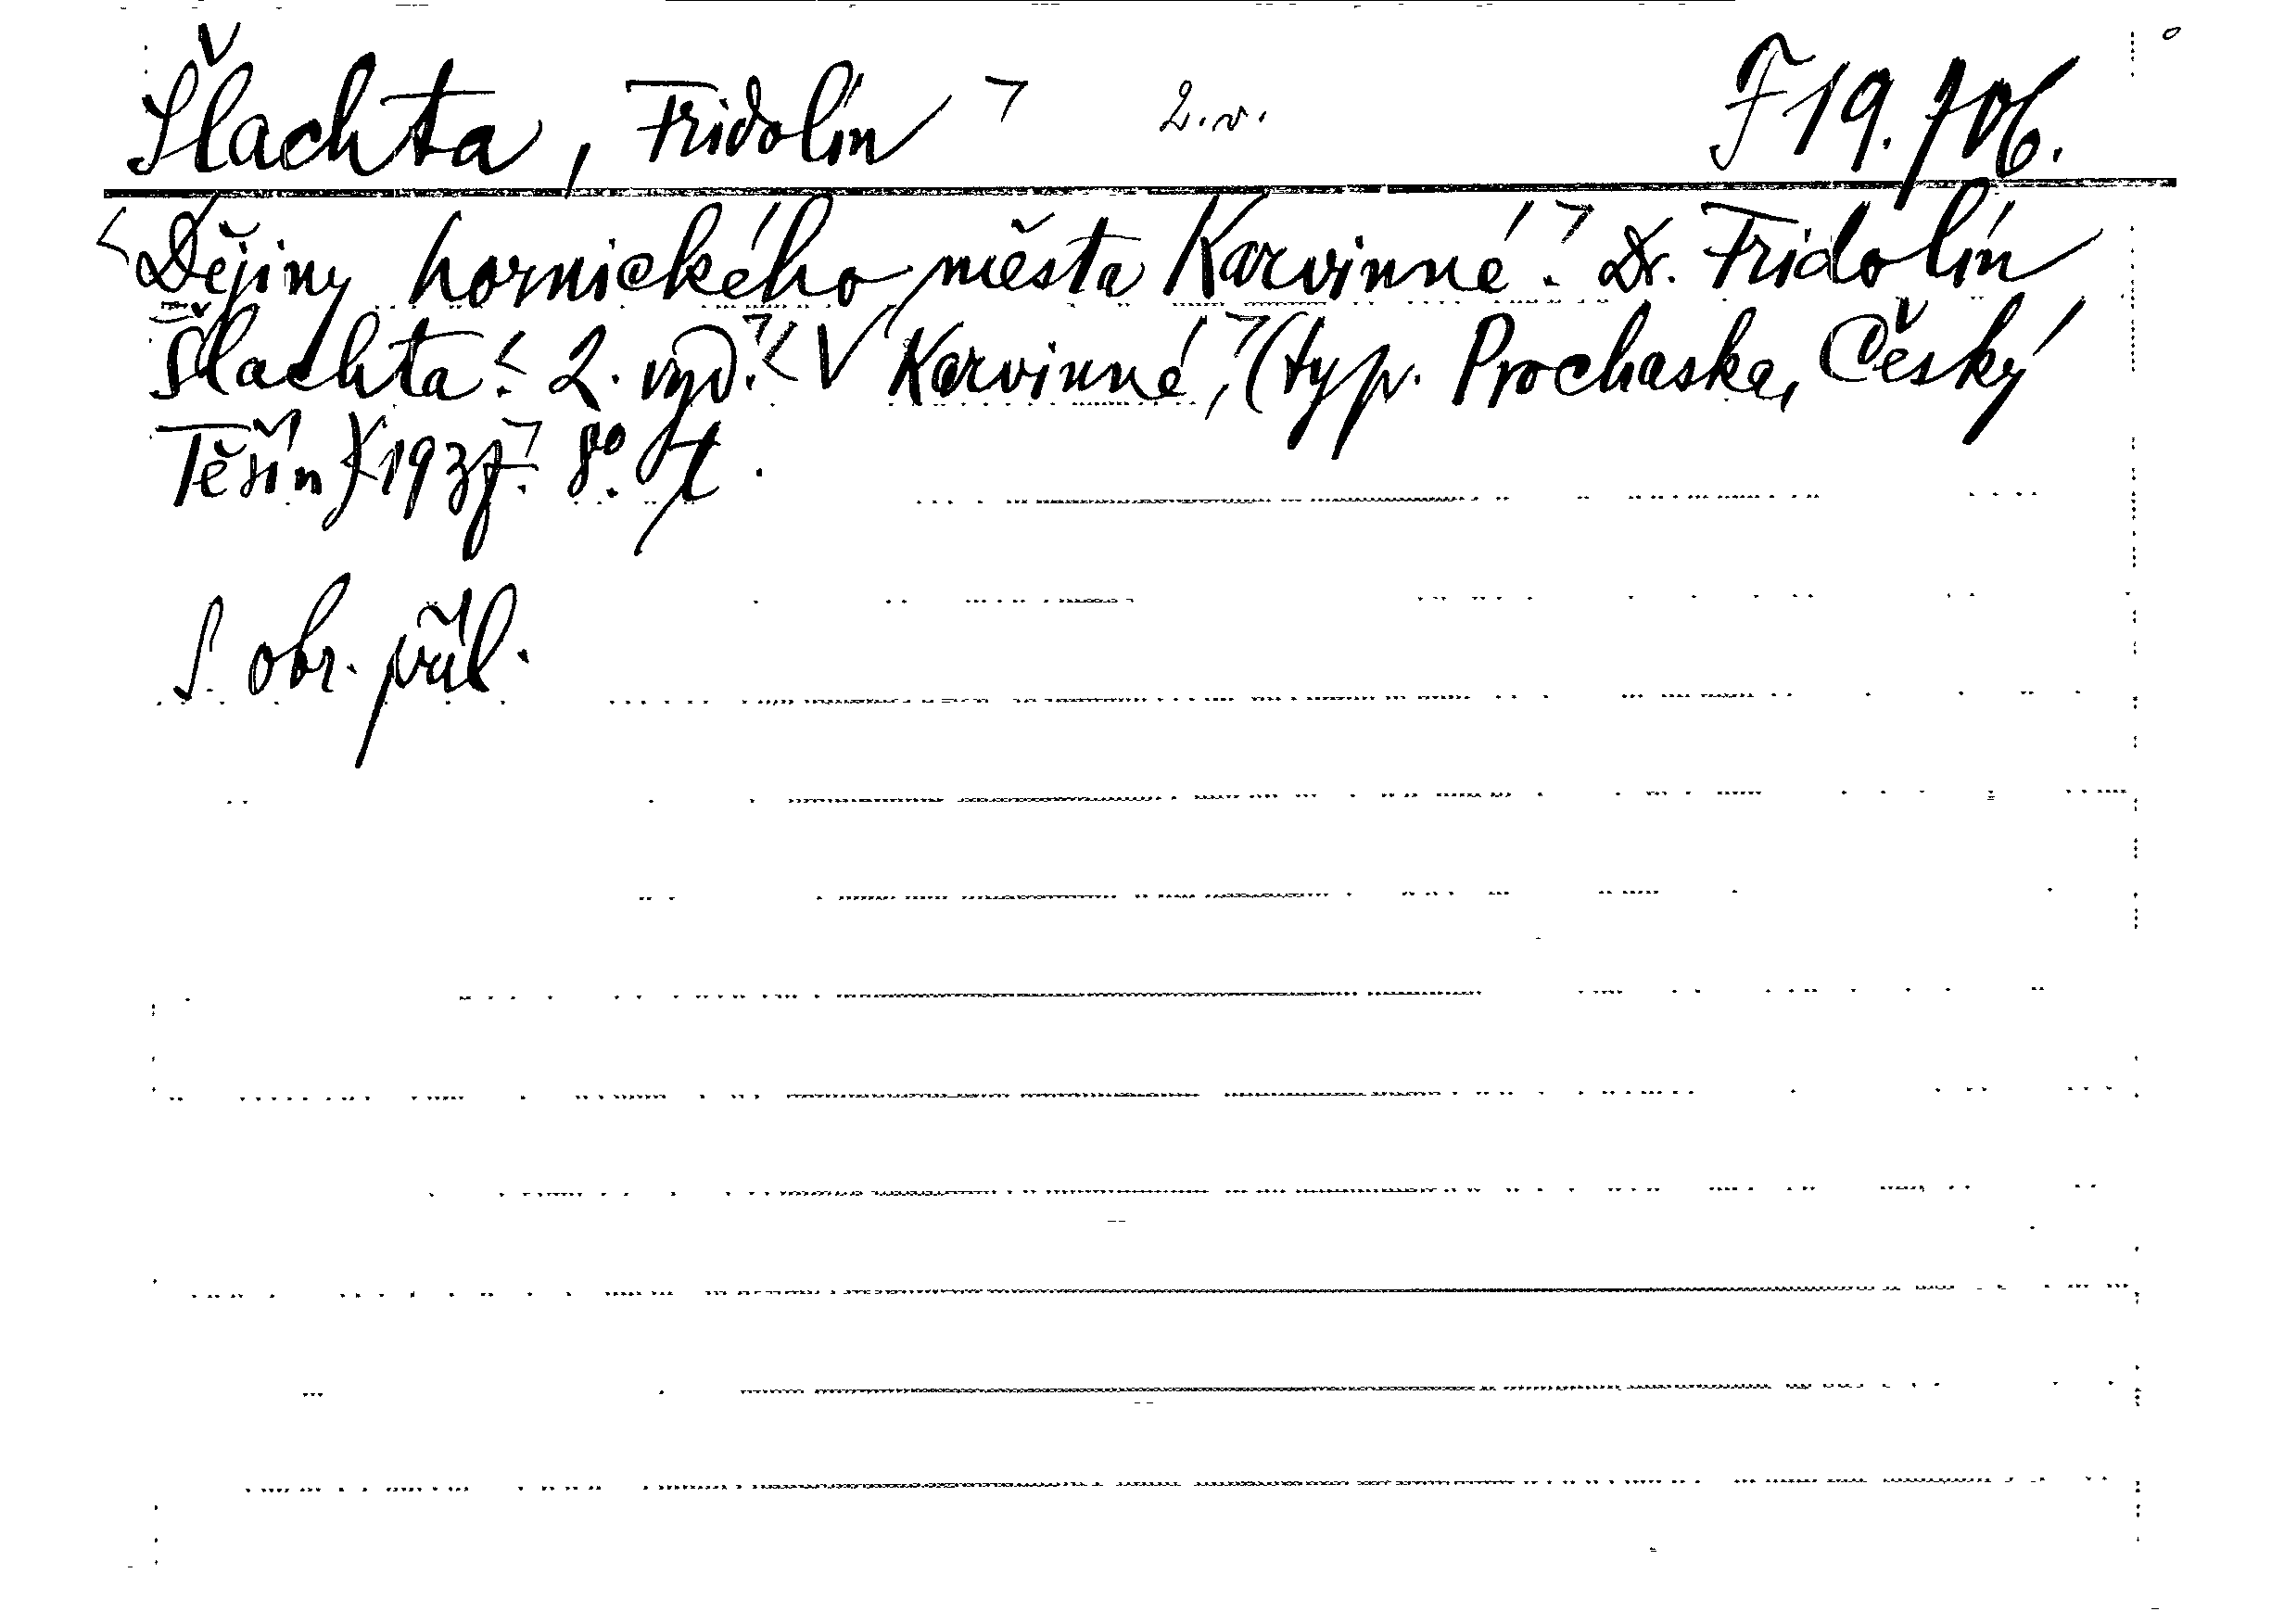 Šlachta, Fridolín 2.v. F 19.706.
Dějiny hornického města Karvinné. Dr. Fridolín
Šlachta. 2. vyd. V Karvinné, (typ. Prochaska, Český
Těšín) 1937. 8°.
S obr. příl.